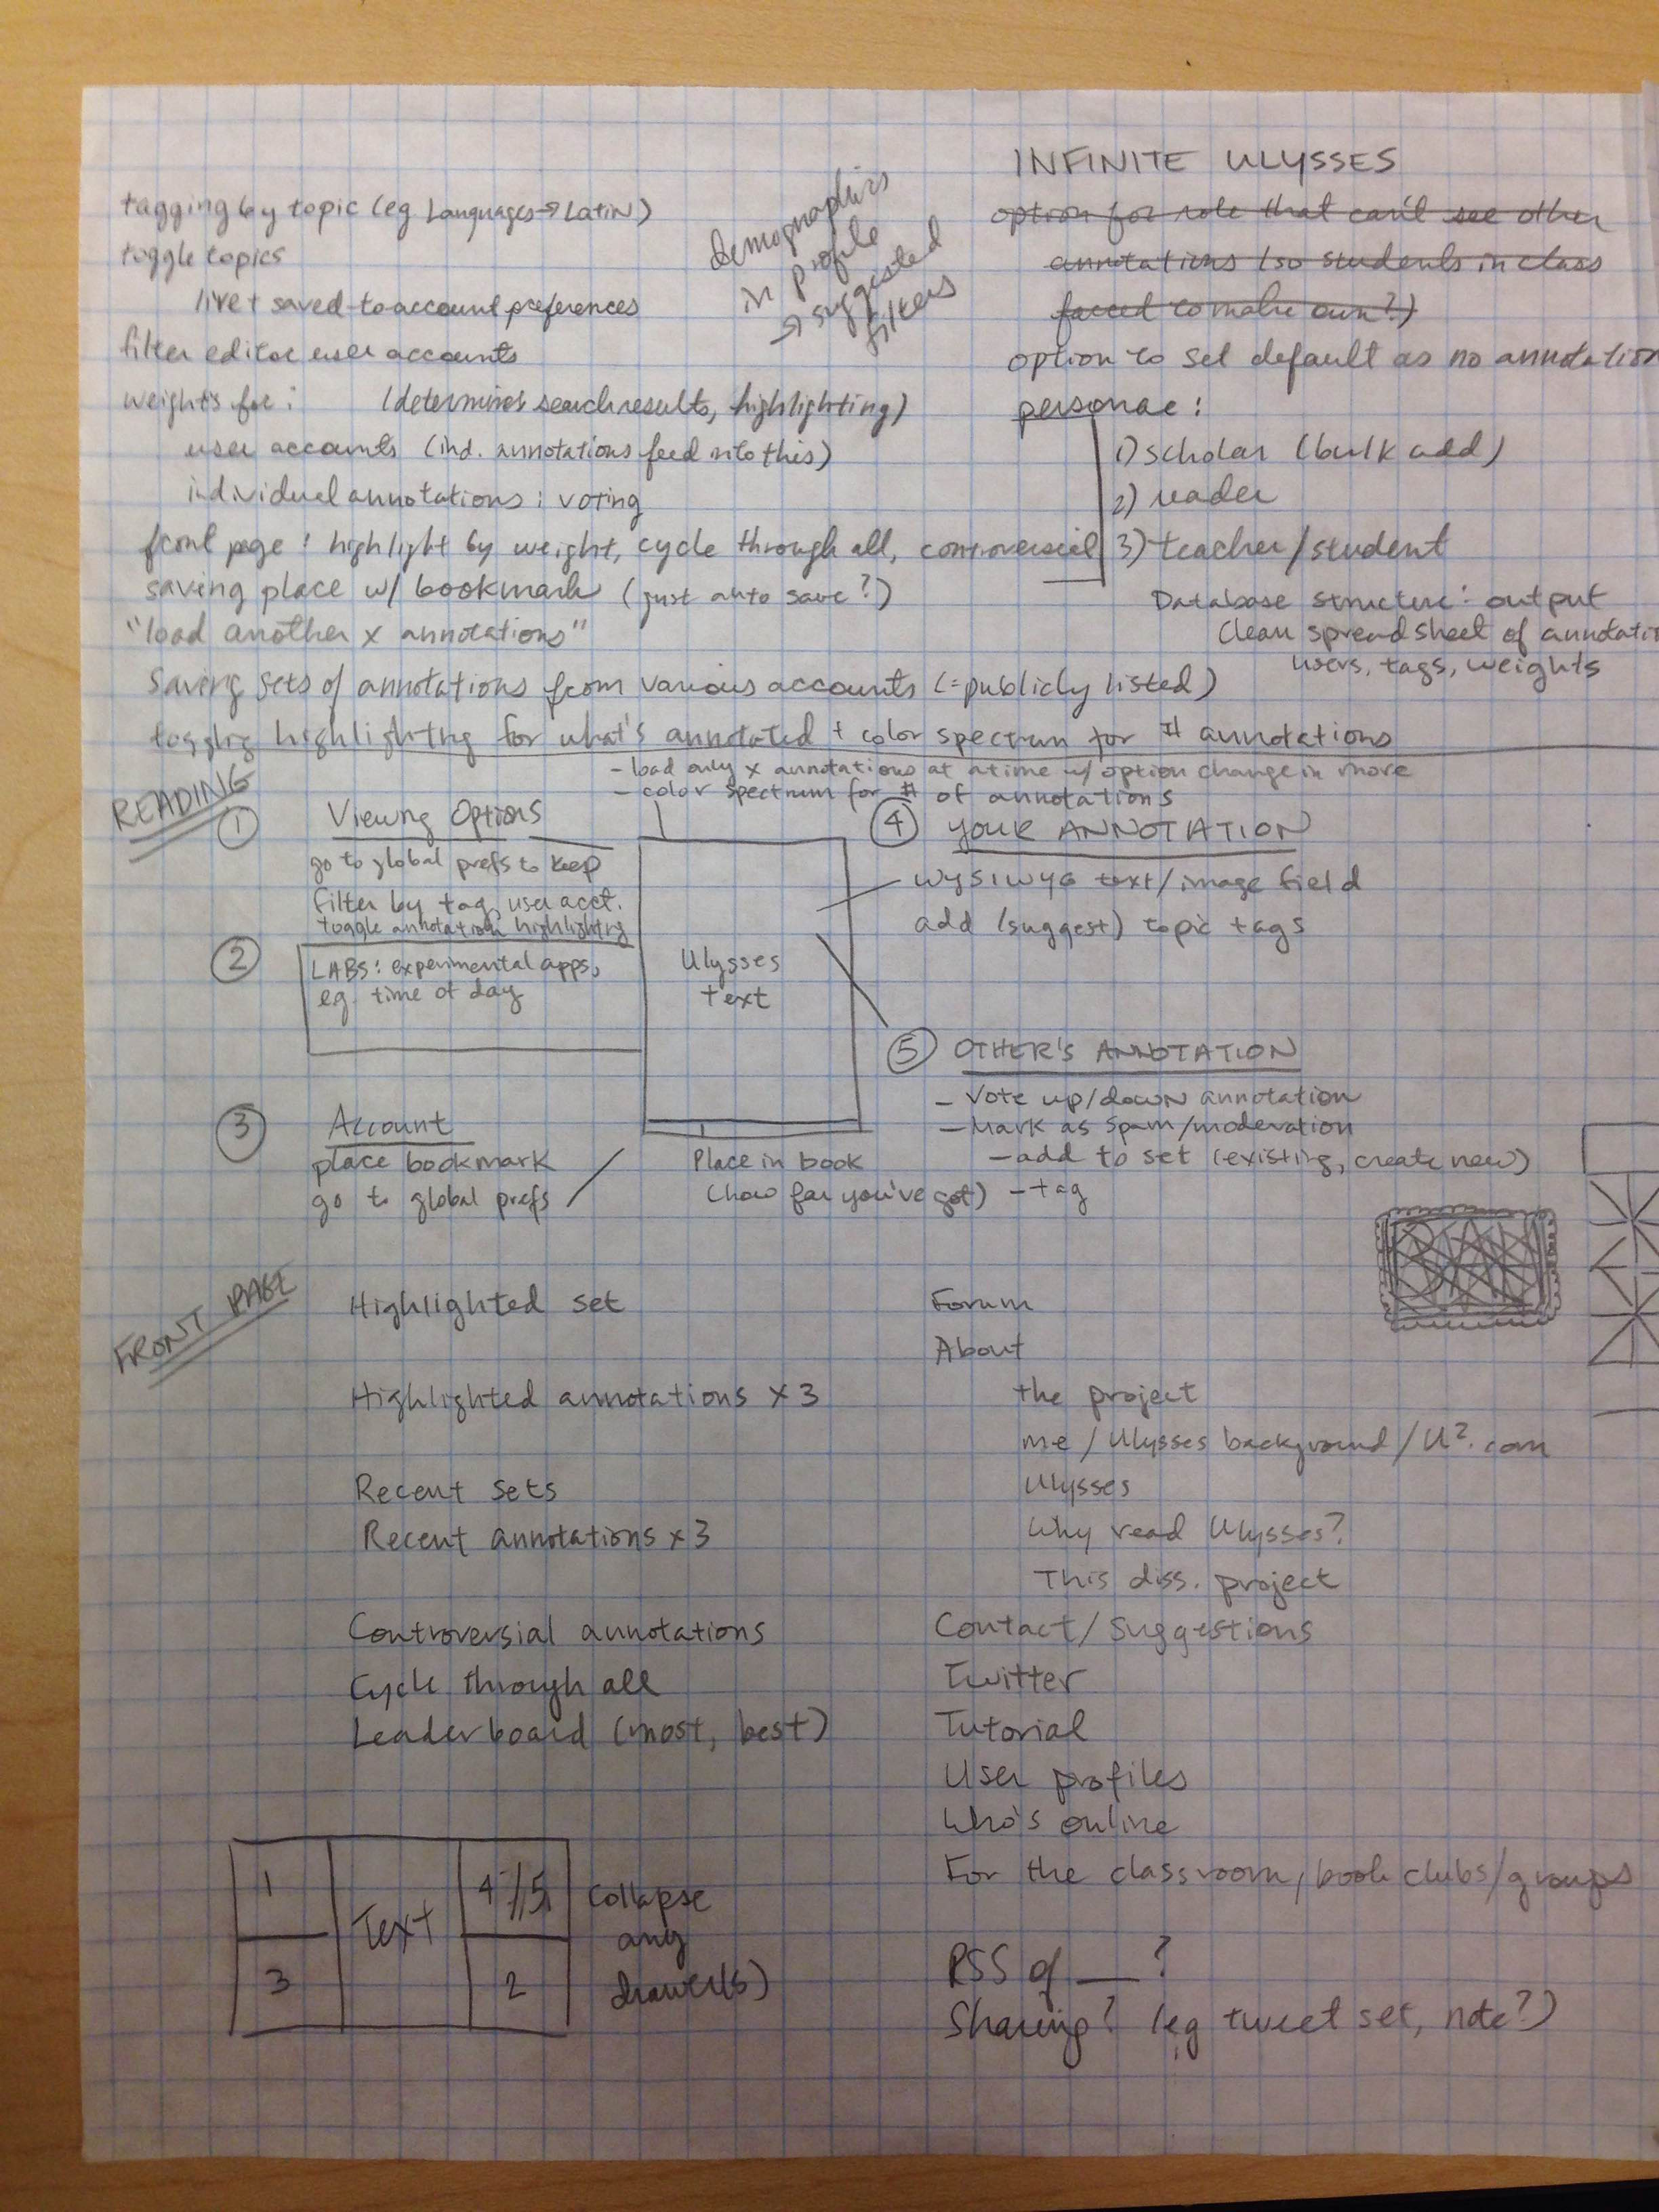 INFINITE ULYSSES
tagging by topic (eg Languages→Latin)
toggle topics
live + saved to account preferences
filter editor user accounts
weights for: (determines search results, highlighting)
user accounts (ind. annotations feed into this)
individual annotations: voting
front page: highlight by weight, cycle through all, controversial
saving place w/ bookmark (just auto save?)
"load another x annotations"
Saving sets of annotations from various accounts (=publicly listed)
toggling highlighting for what's annotated + color spectrum for # annotations
demographics
in profile
→ suggested
filters
option for role that can't see other
annotations (so students in class
forced to make own?)
option to set default as no annotation
personae:
1) scholar (bulk add)
2) reader
3) teacher/student
Database structure: output
clean spreadsheet of
users, tags, weights
READING
- load only x annotations at a time w/ option change in more
- color spectrum for # of annotations
1 Viewing Options
go to global prefs to keep
filter by tag, user acct.
toggle annotation highlighting
2 LABS: experimental apps,
eg. time of day
3 Account
place bookmark
go to global prefs
Ulysses
text
Place in book
(how far you've got)
4 YOUR ANNOTATION
WYSIWYG text/image field
add (suggest) topic tags
5 OTHER'S ANNOTATION
- Vote up/down annotation
- Mark as spam/moderation
- add to set (existing, create new)
- tag
FRONT PAGE
Highlighted set
Highlighted annotations x 3
Recent sets
Recent annotations x 3
Controversial annotations
Cycle through all
Leaderboard (most, best)
Forum
About
the project
me / Ulysses background / U². com
Ulysses
Why read Ulysses?
This diss. project
Contact/Suggestions
Twitter
Tutorial
User profiles
Who's online
For the classroom, book clubs/groups
RSS of __ ?
Sharing? (eg tweet set, note?)
1 Text 4//5
3 2
Collapse
any
drawer(s)